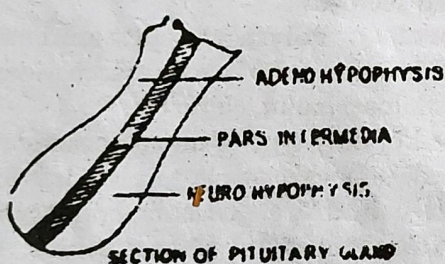 ADENOHYPOPHYSIS
PARS INTERMEDIA
NEUROHYPOPHYSIS
SECTION OF PITUITARY GLAND